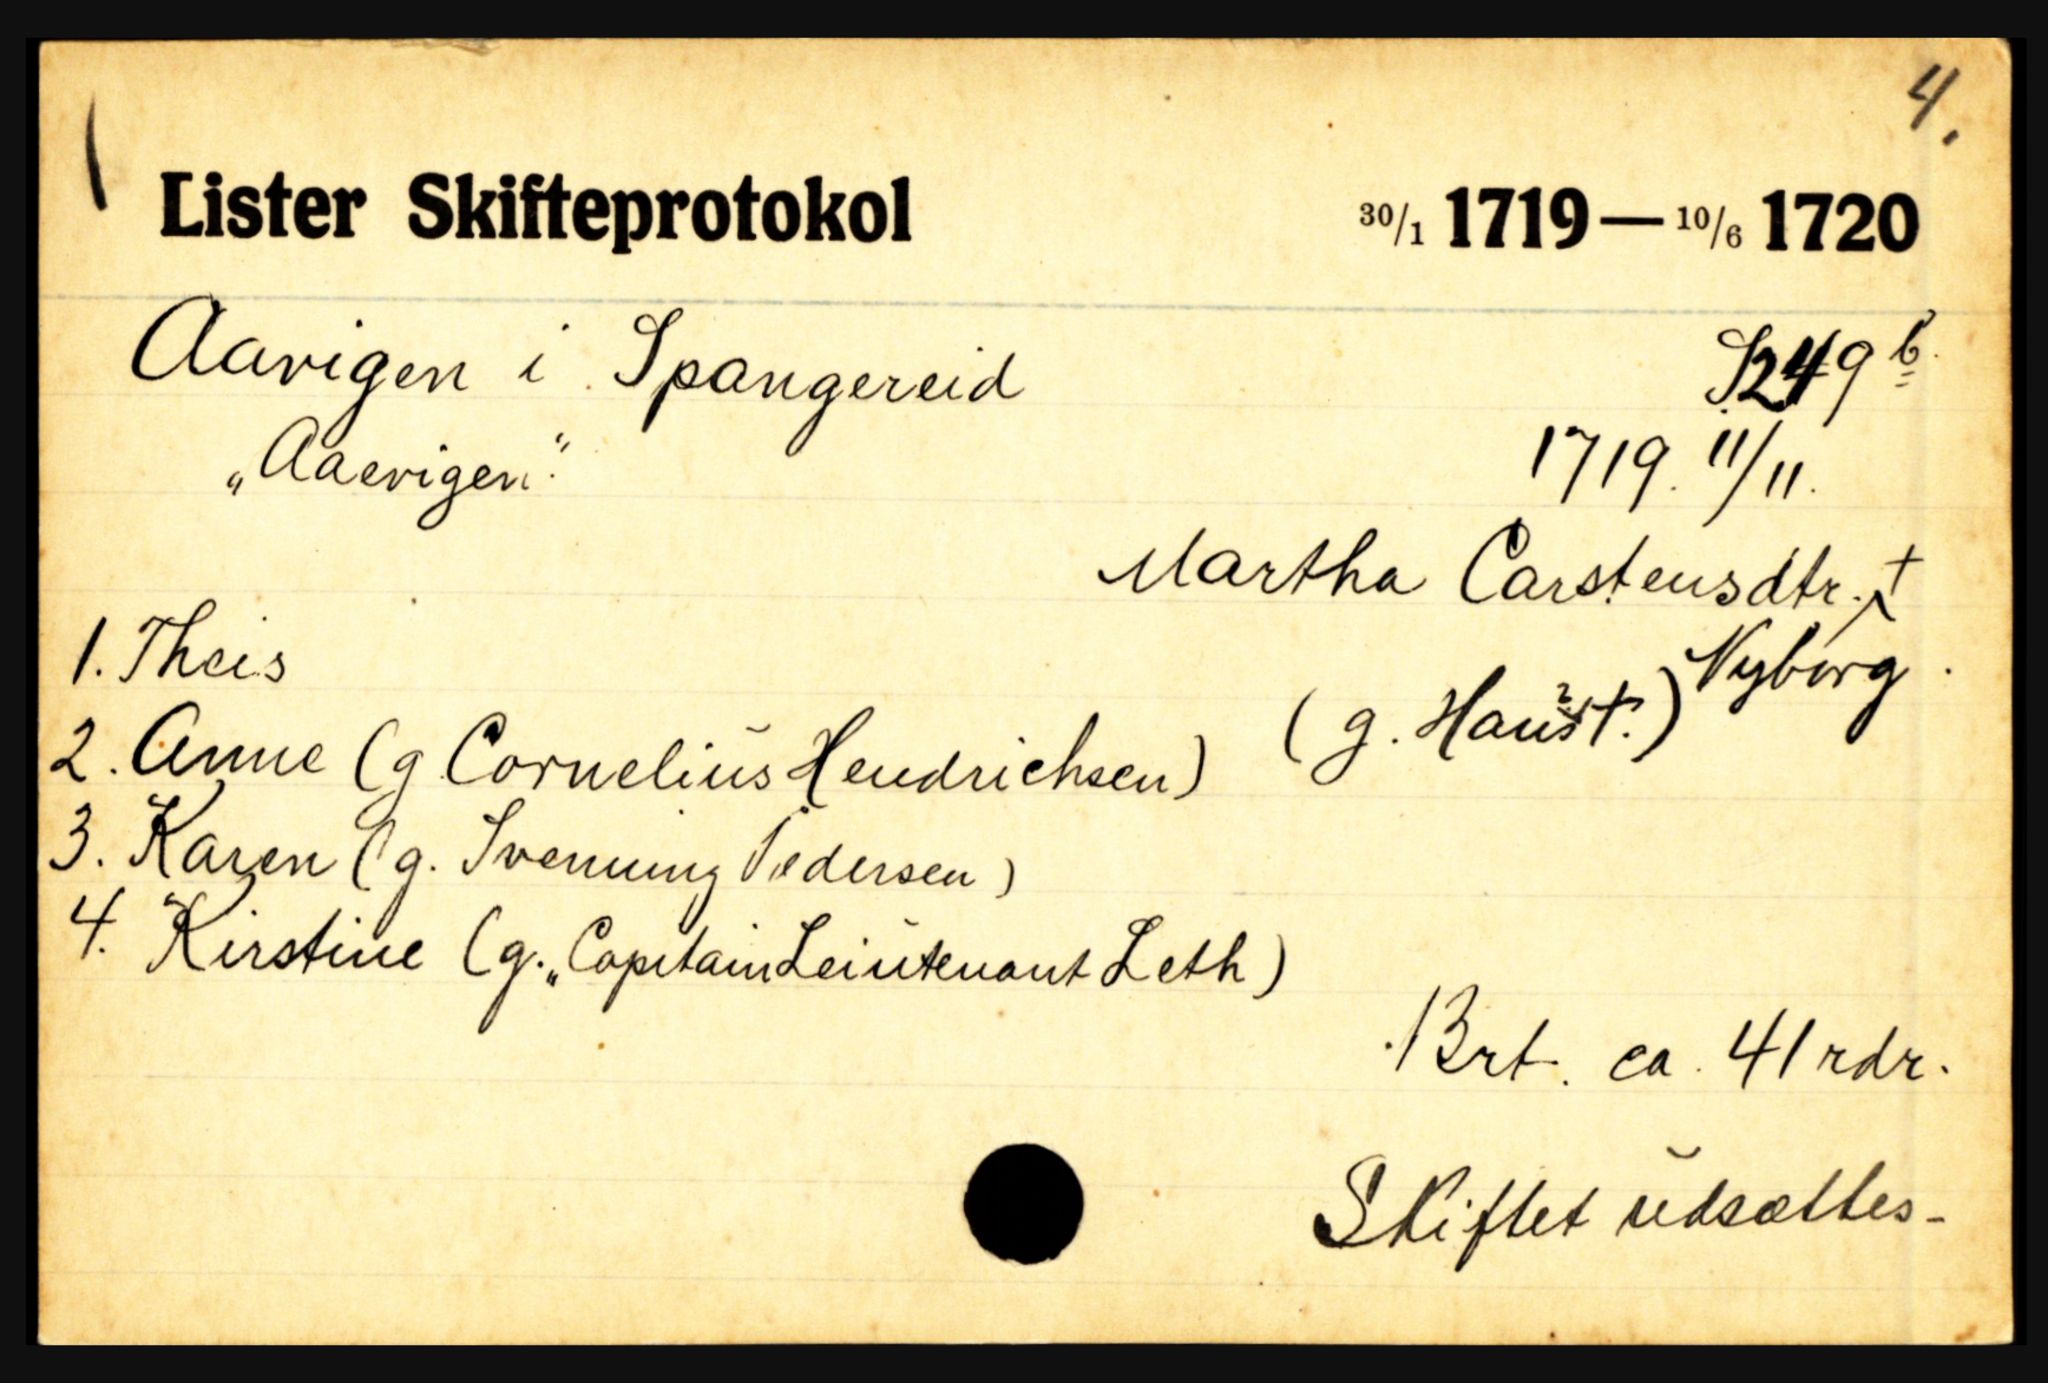 4.
Lister Skifteprotokol 30/1 1719 — 10/6 1720
Aavigen i Spangereid S. 249 b.
„Aaevigen“. 1719. 11/11.
Martha Carstensdtr. †
Nyborg.
1. Theis
(g. )
2. Anne (g Cornelius Hendrichsen)
3. Karen (g. Svenning Pedersen)
4. Kirstine (g. „Capitain Leiutenant Leth)
Brt. ca. 41 rdr.
Skiftet udsættes-